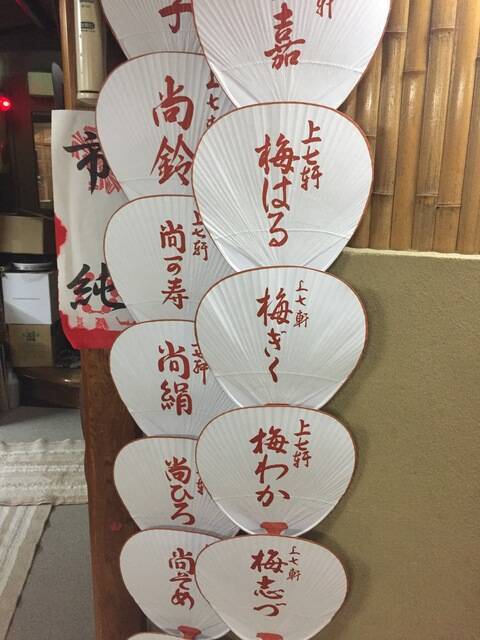 子
尚鈴
上七
尚可寿
上七軒
尚絹
七軒
尚ひろ
軒
尚そめ
軒
嘉
上七軒
梅はる
上七軒
梅ぎく
上七軒
梅わか
上七軒
梅志づ
市
純